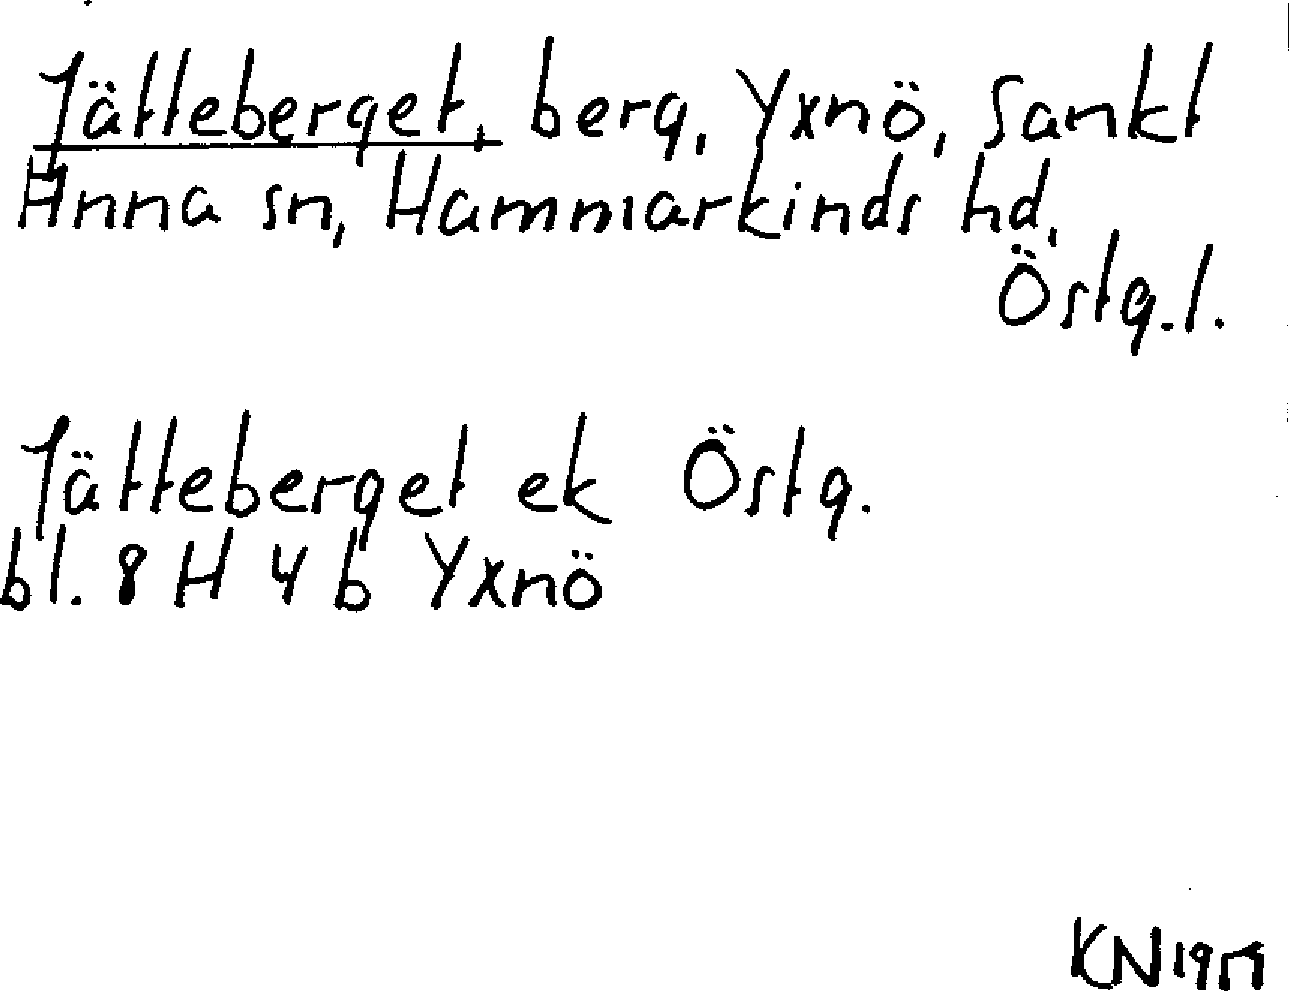 Jätteberget, berg, Yxnö, Sankt
Anna sn, Hammarkinds hd,
Östg.l.
Jätteberget ek Östg.
bl. 8 H 4 b Yxnö
KN